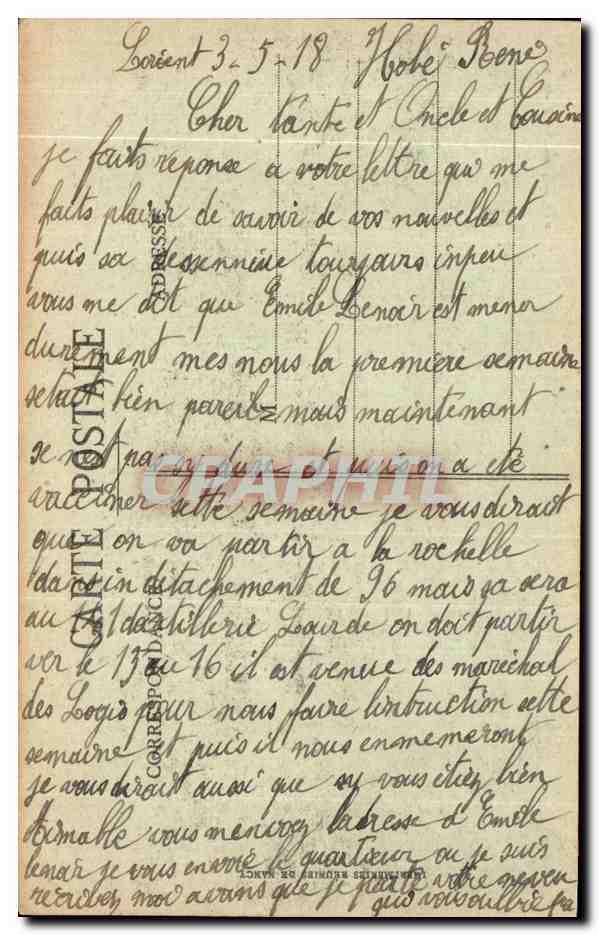 Lorient 3-5-18 Hobé René
Cher tante et Oncle et Cousine
je faits réponse a votre lettre qui me
faits plaisir de savoir de vos nouvelles et
puis sa dessennuie toujours inpeu
vous me dit que Emile Lenoir est mener
durement mes nous la premiere semaine
setait bien pareil mais maintenant
se n'est pas si dure et puis on a été
vacciner sette semaine je vous dirait
que on va partir a la rochelle
dans in détachement de 96 mais sa sera
au d'artillerie Lourde on doit partir
ver le 15 au 16 il est venue des maréchal
des Logis pour nous faire lintruction sette
semaine et puis il nous enmemeront
je vous dirait aussi que sy vous étiez bien
Aimable vous menvoyez ladresse d'Emile
lenoir je vous envoie le quartieur ou je suis
récrivez moi avans que je parte votre neveu
qui vous oublie pa
CARTE POSTALE
CORRESPONDANCE
ADRESSE
M
IMPRIMERIES REUNIES DE NANCY
CPAPHIL